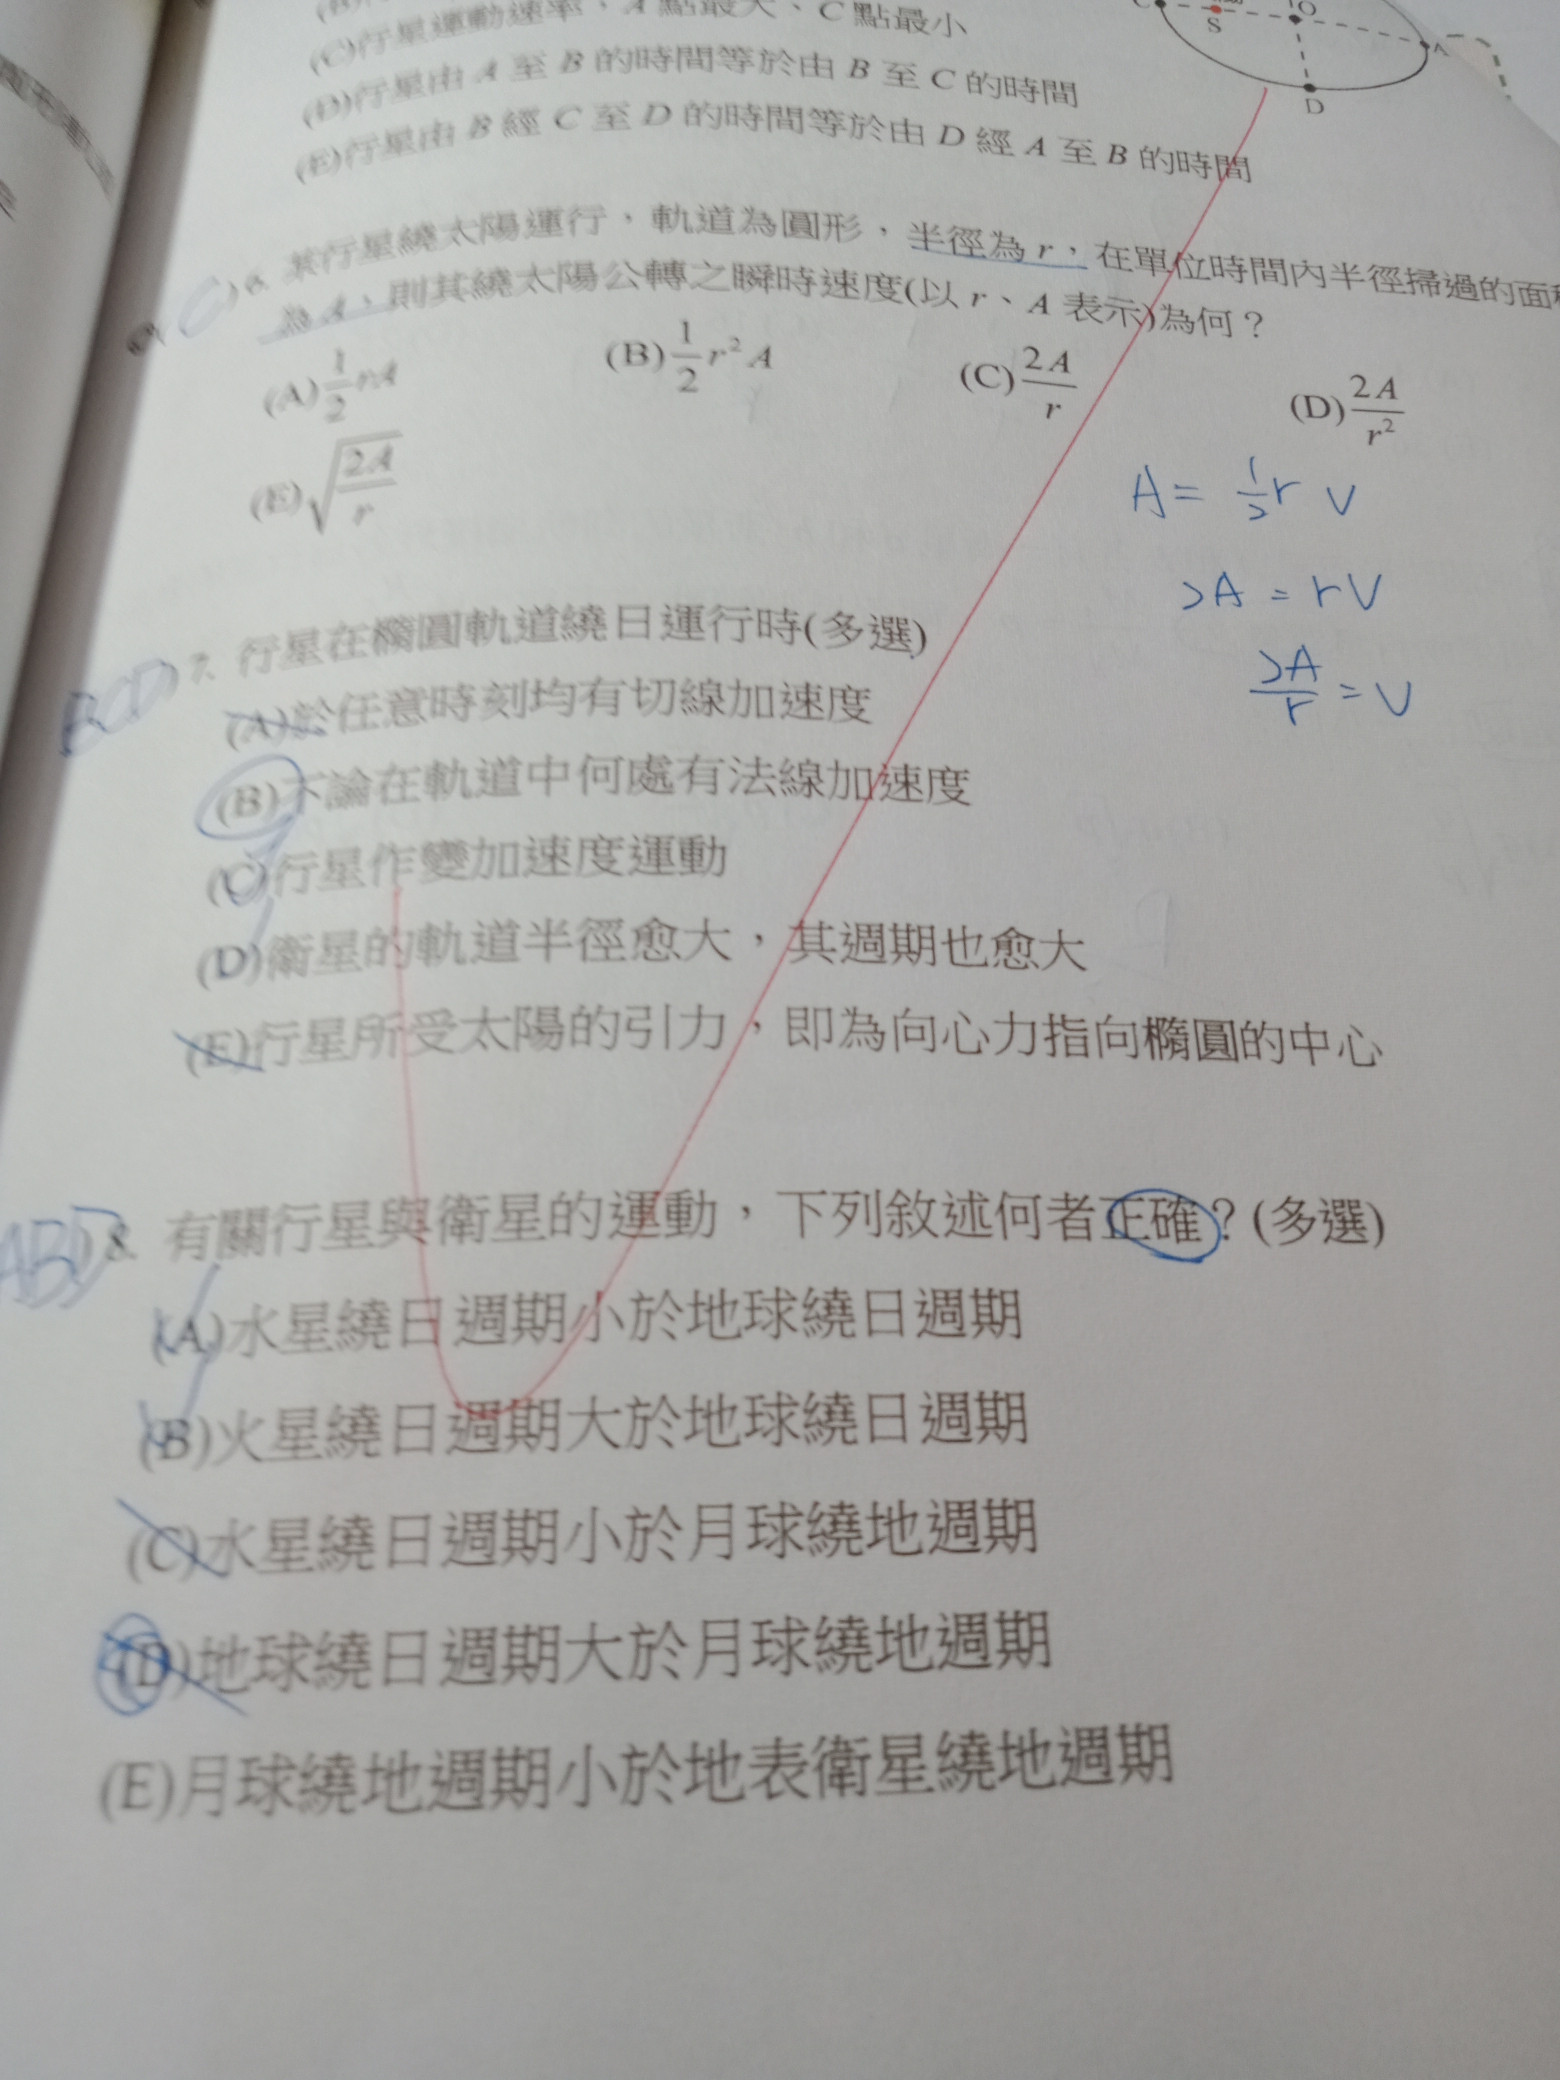 (C)行星運動速率，A點最大、C點最小
(D)行星由 A 至 B 的時間等於由 B 至 C 的時間
(E)行星由 B 經 C 至 D 的時間等於由 D 經 A 至 B 的時間
C
S
O
A
D
C
6. 某行星繞太陽運行，軌道為圓形，半徑為 r，在單位時間內半徑掃過的面積
為 A，則其繞太陽公轉之瞬時速度(以 r、A 表示)為何？
(A) 1/2 rA (B) 1/2 r² A (C) 2A/r (D) 2A/r²
(E) √(2A/r)
A = 1/2 r v
2A = rv
2A/r = v
BCD
7. 行星在橢圓軌道繞日運行時(多選)
(A)於任意時刻均有切線加速度
(B)不論在軌道中何處有法線加速度
(C)行星作變加速度運動
(D)衛星的軌道半徑愈大，其週期也愈大
(E)行星所受太陽的引力，即為向心力指向橢圓的中心
ABD
8. 有關行星與衛星的運動，下列敘述何者正確？(多選)
(A)水星繞日週期小於地球繞日週期
(B)火星繞日週期大於地球繞日週期
(C)水星繞日週期小於月球繞地週期
(D)地球繞日週期大於月球繞地週期
(E)月球繞地週期小於地表衛星繞地週期